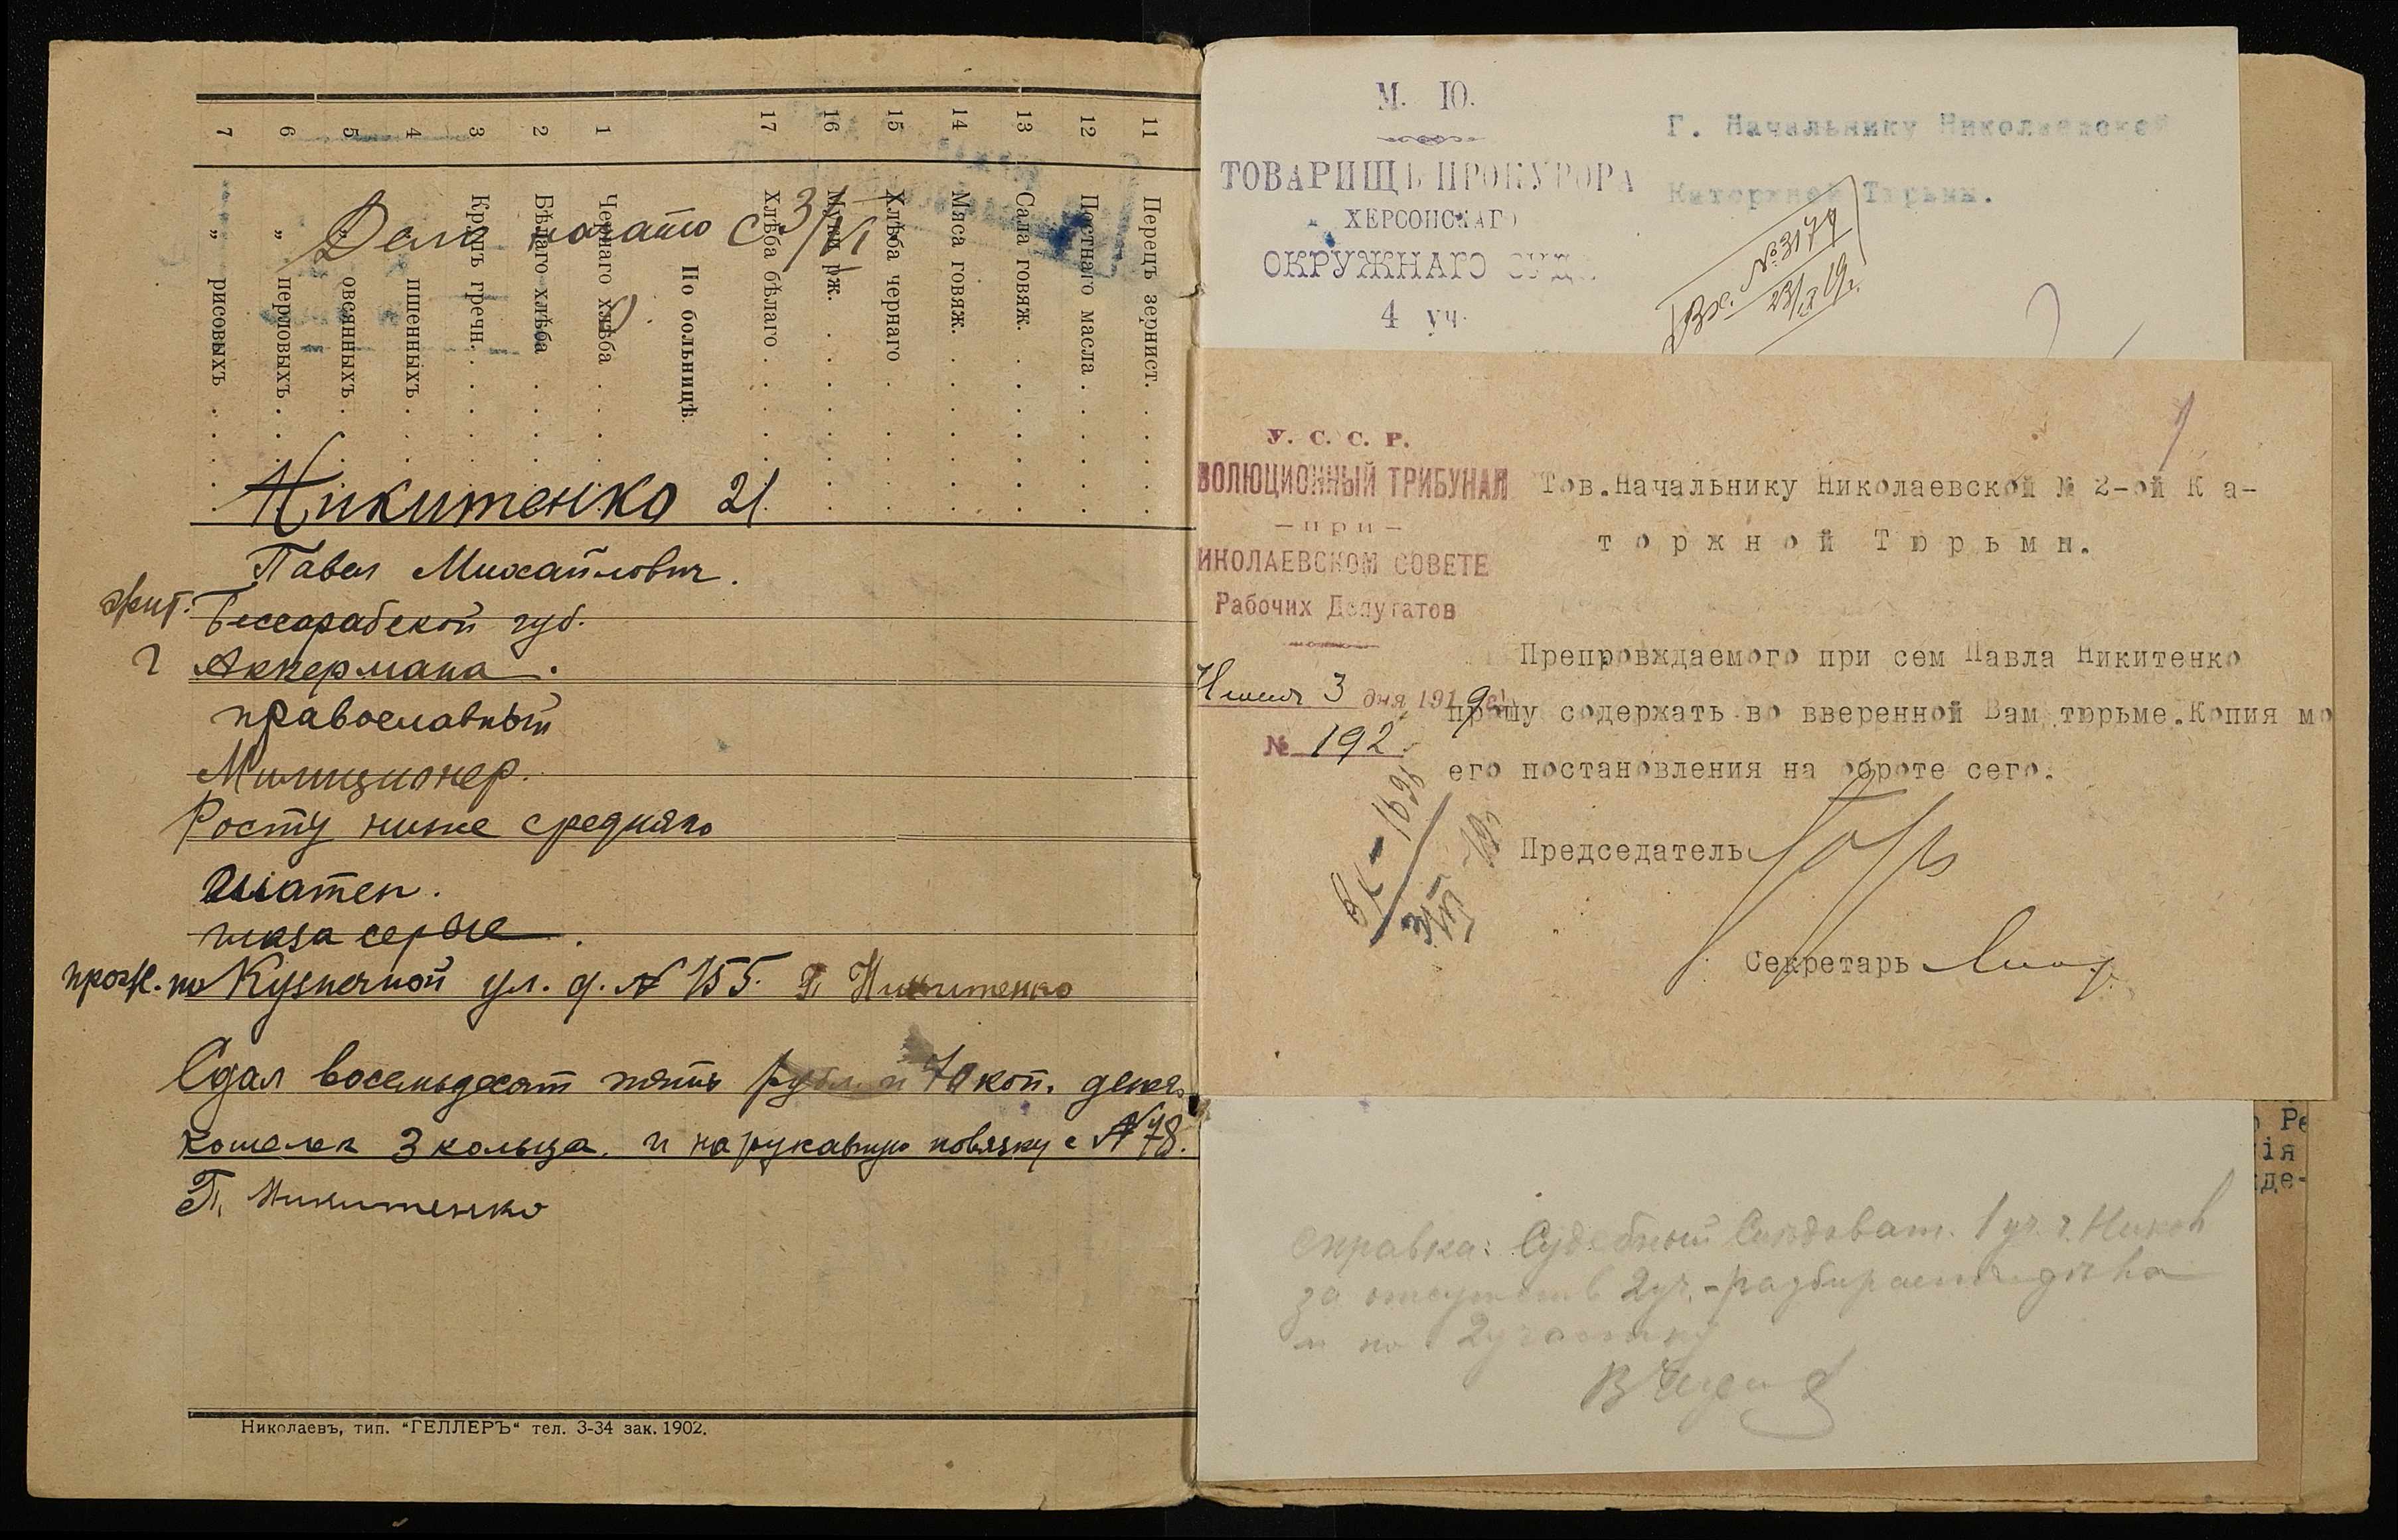 11 Перецъ зернист.
12 Постнаго масла
13 Сала говяж.
14 Мяса говяж.
15 Хлѣба чернаго
16 Муки рж.
17 Хлѣба бѣлаго
По больницѣ.
1 Чернаго хлѣба
2 Бѣлаго хлѣба
3 Крупъ гречн.
4 „ пшенныхъ
5 „ овсянныхъ
6 „ перловыхъ
7 „ рисовыхъ
Дело начато с 3/VI
Никитенко 21
Павел Михайлович.
жит. Бессарабской губ.
г Аккермана.
православный
Милиционер.
Росту ниже средняго
шатен.
глаза серые.
прож. по Кузнечной ул. д. № 155. П Никитенко
Сдал восемьдесят пять рубл и 70 коп. денег,
кошелек 3 кольца. и нарукавную повязку с № 78.
П. Никитенко
Николаевъ, тип. "ГЕЛЛЕРЪ" тел. 3-34 зак. 1902.
М. Ю.
ТОВАРИЩЪ ПРОКУРОРА
ХЕРСОНСКАГО
ОКРУЖНАГО СУДА
4 уч.
Г. Начальнику Николаевской
Каторжной Тюрьмы.
Вх. № 3179
19г.
1
У. С. С. Р.
ВОЛЮЦИОННЫЙ ТРИБУНАЛ
– при –
ИКОЛАЕВСКОМ СОВЕТЕ
Рабочих Депутатов
Июня 3 дня 1919
№ 192
Тов.Начальнику Николаевской № 2-ой К а-
т о р ж н о й Т ю р ь м ы.
Препровждаемого при сем Павла Никитенко
прошу содержать во вверенной Вам тюрьме.Копия мо
его постановления на оброте сего.
Председатель
Секретарь
Справка: Судебный Следоват. 1 уч. г. Никол
за отсутств 2 уч. - разбирает дела
и по 2 участку
о Ре
ія
де-